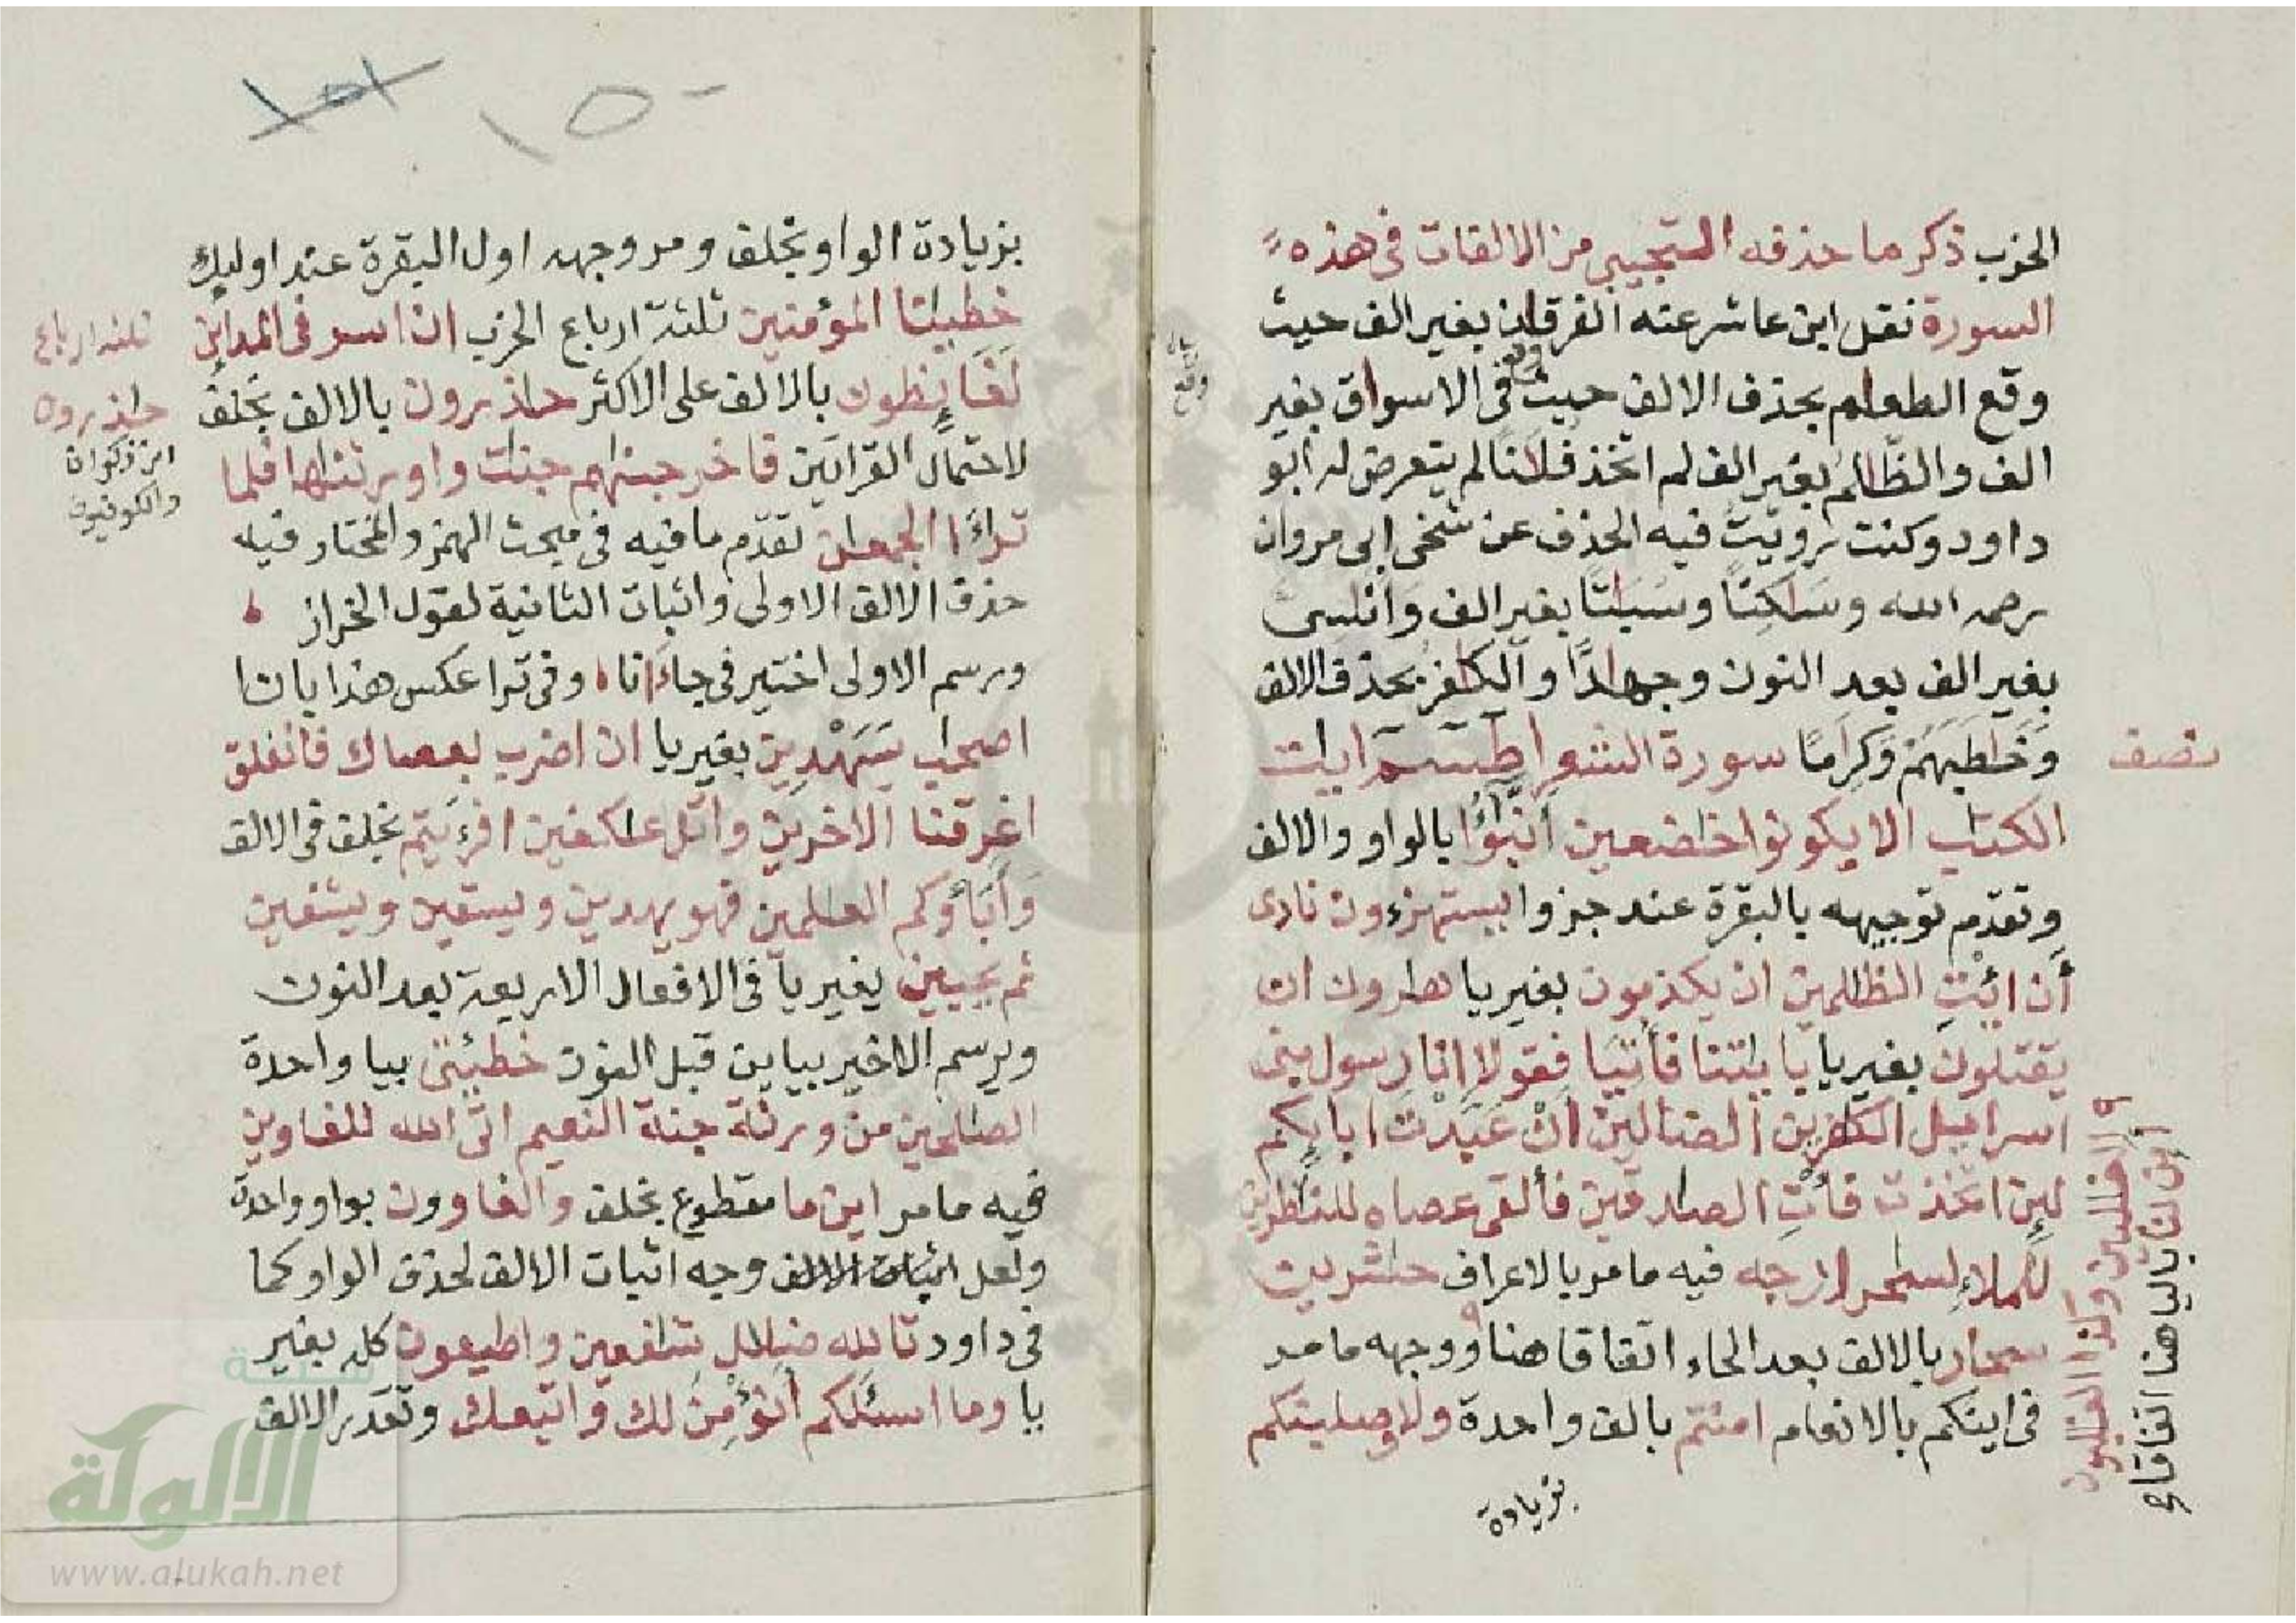 الحزب ذكر ما حذفه التجيبي من الالفات في هذه
السورة نقل ابن عاشر عنه الفرقان بغير الف حيث
وقع الطعام بحذف الالف حيث وقع في الاسواق بغير
الف والظالم بغير الف لم اتخذ فلانا لم يتعرض له ابو
داود وكنت رويت فيه الحذف عن شخى ابى مروان
رحمه الله وساكنا وسباتا بغير الف واناسى
بغير الف بعد النون وجهادا والكافر بحذف الالف
وخاطبهم وكراما سورة الشعرا طسم ايات
الكتاب الا يكونوا خاضعين انبؤا بالواو والالف
وتقدم توجيهه بالبقرة عند جزوا يستهزءون نادى
أن ائت الظالمين ان يكذبون بغير يا هارون ان
يقتلون بغير يا باياتنا فأتيا فقولا انا رسول بنى
اسرائيل الكافرين الضالين ان عبدت ابايكم
لين اتخذت فأت الصادقين فألقى عصاه للناظرين
للملاء لساحر ارجه فيه ما مر بالاعراف حاشرين
سحار بالالف بعد الحاء اتفاقا هنا ووجهه ما مر
فى اينكم بالانعام امنتم بالف واحدة ولاوصلبنكم
بزيادة
نصف
وكذا الغالبون
أين لنا باليا هنا اتفاقا
بزيادة الواو بخلف ومر وجهه اول البقرة عند اوليك
خطيانا المؤمنين ثلثة ارباع الحزب ان اسر فى المداين
لغايظون بالالف على الاكثر حاذرون بالالف بخلف
لاحتمال القراتين فاخرجناهم جنات واورثناها فلما
تراءا الجمعان تقدم ما فيه فى مبحث الهمز والمختار فيه
حذف الالف الاولى واثبات الثانية لقول الخراز
ورسم الاولى اختير فى جاءانا وفى ترا عكس هذا بانا
اصحاب سيهدين بغير يا ان اضرب بعصاك فانفلق
اغرقنا الاخرين واتل عاكفين افرءيتم بخلف فى الالف
وأباؤكم العالمين فهو يهدين ويسقين ويشفين
ثم يحيين بغير يا فى الافعال الاربعة بعد النون
ويرسم الاخير بيايين قبل النون خطيئتى بيا واحدة
الصالحين من ورثة جنة النعيم اتى الله للغاوين
فيه ما مر اين ما مقطوع بخلف والغاوون بواو واحدة
ولعل وجه اثبات الالف لحذف الواو كما
فى داود تالله ضلال شافعين واطيعون كله بغير
يا وما اسئلكم أنؤمن لك واتبعك وتقدر الالف
ثلثه ارباع
حاذرون
ابن ذكوان
والكوفيون
١٥٠
١٥١
شبكة
الألوكة
www.alukah.net